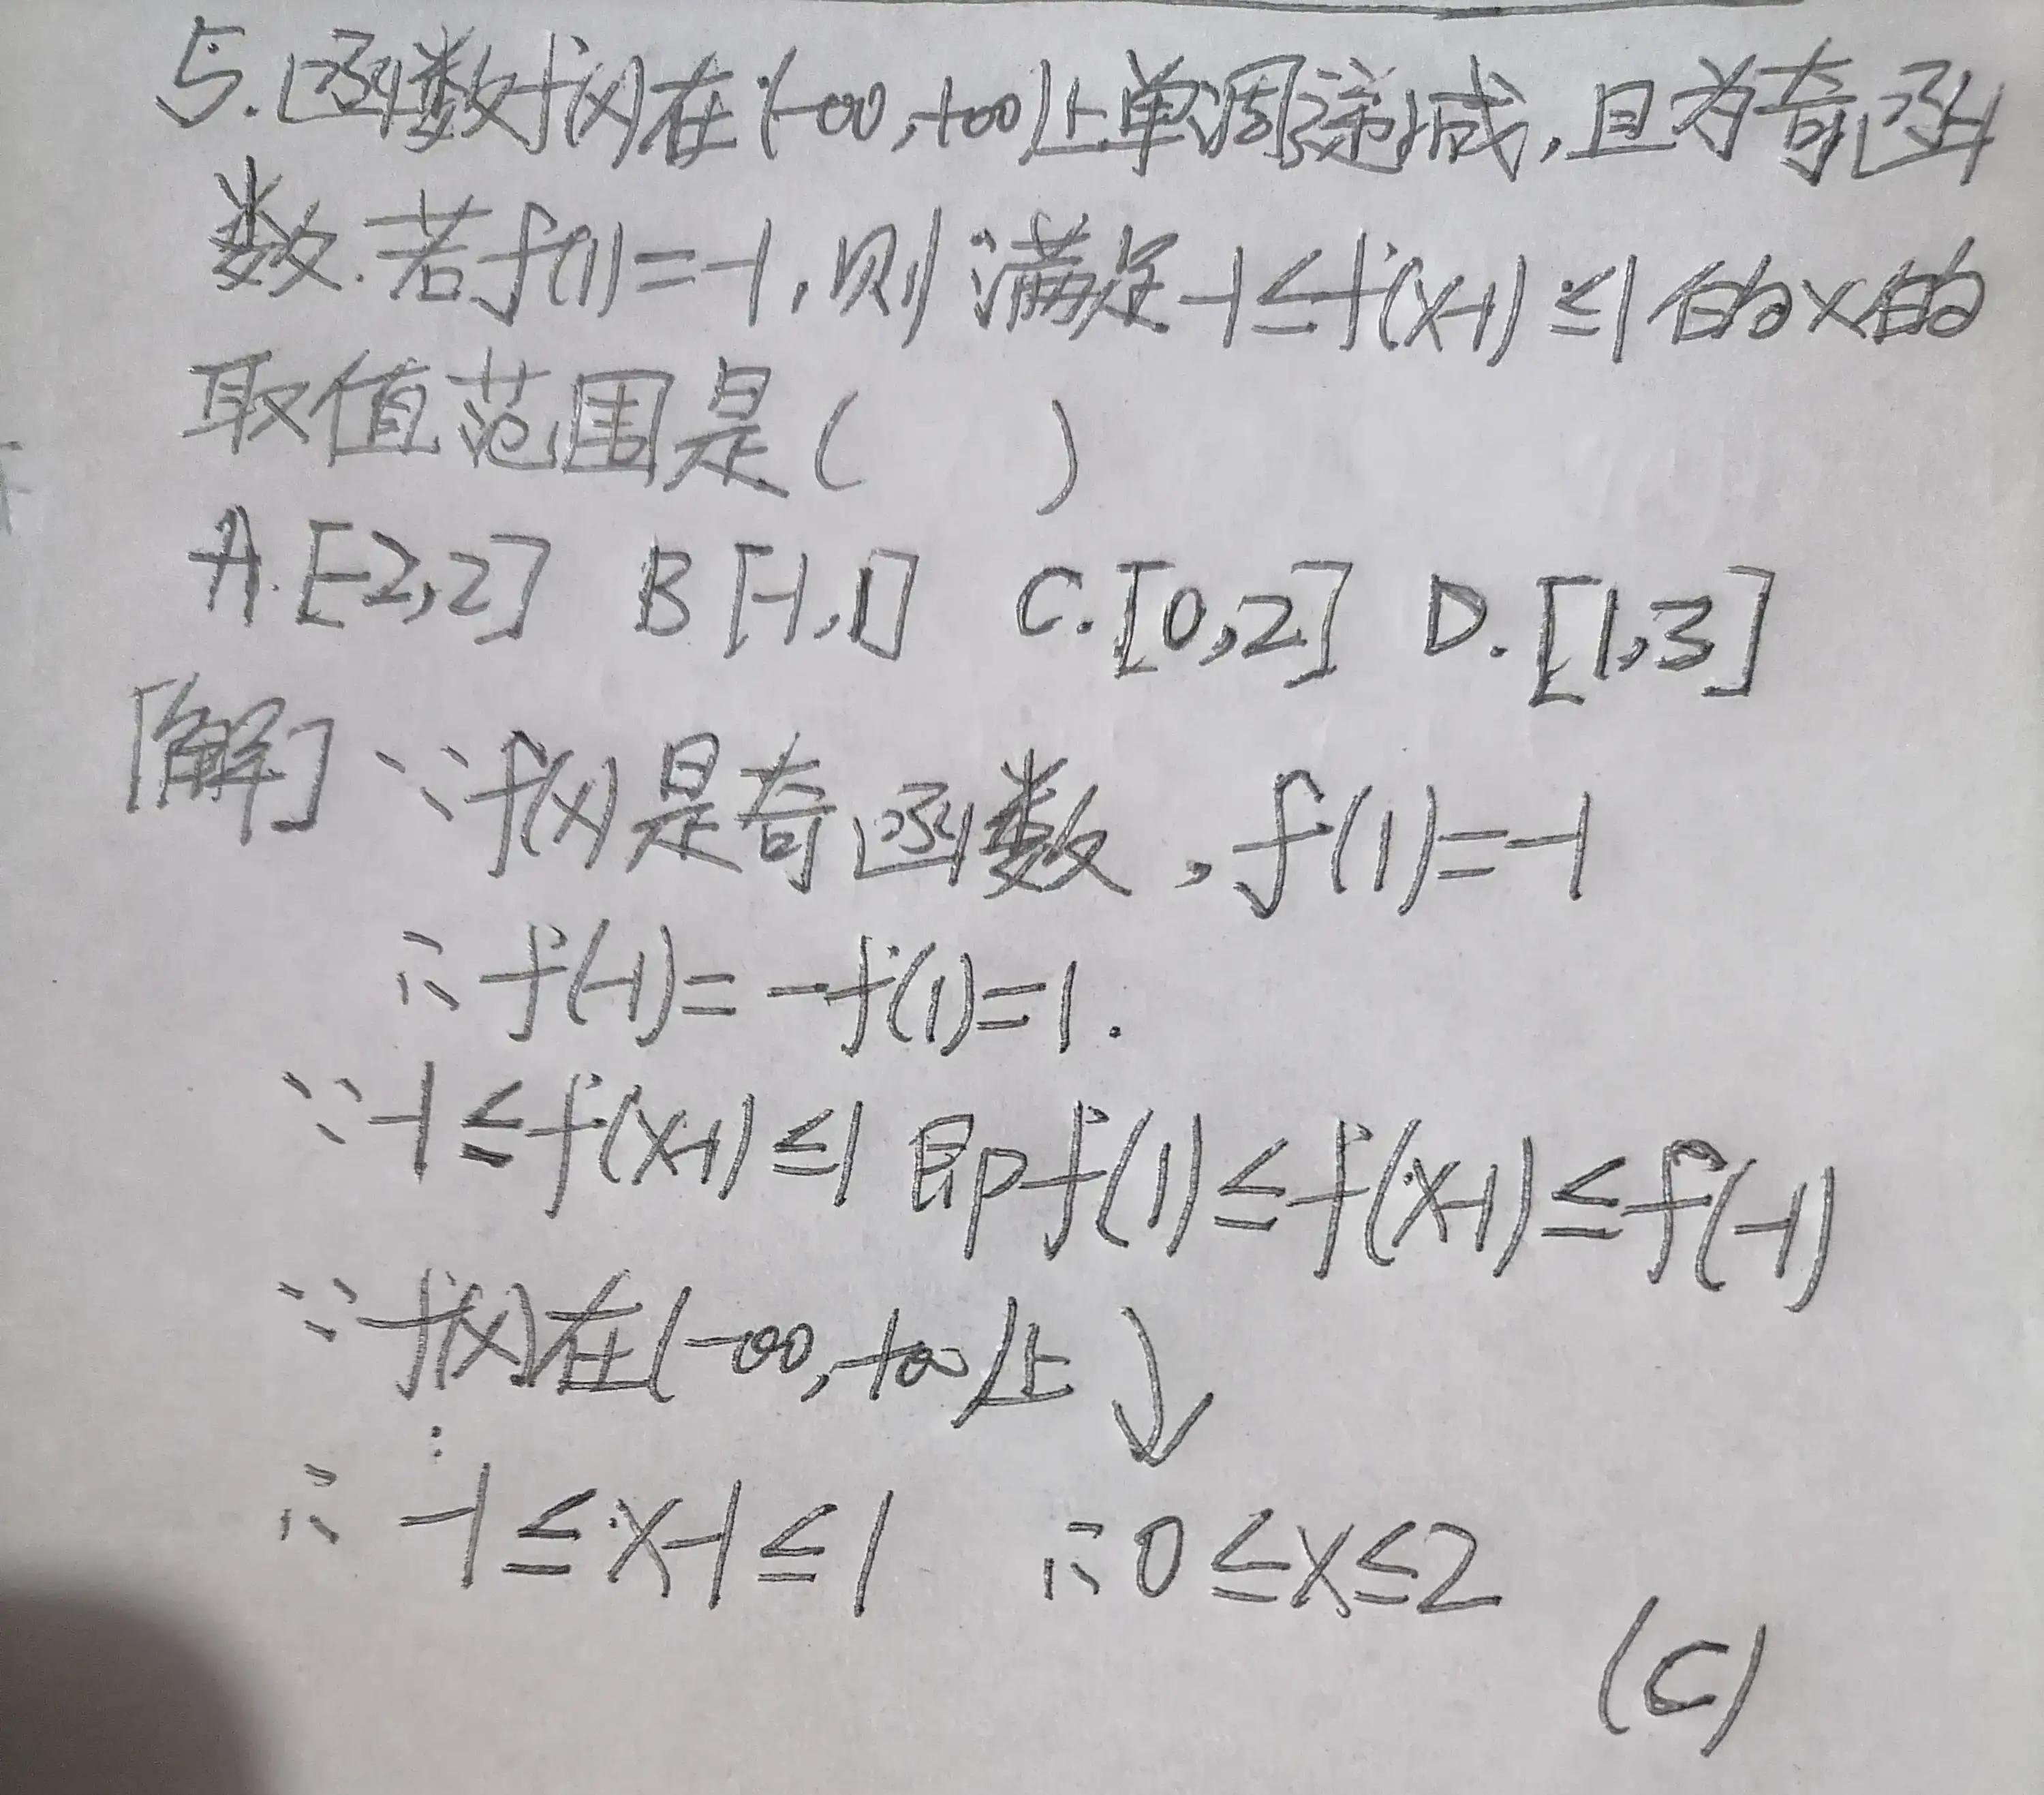 5.函数f(x)在(-∞,+∞)上单调递减,且为奇函
数.若f(1)=-1,则满足-1≤f(x-1)≤1的x的
取值范围是( )
A.[-2,2] B[-1,1] C.[0,2] D.[1,3]
[解]∵f(x)是奇函数,f(1)=-1
∴f(-1)=-f(1)=1.
∵-1≤f(x-1)≤1即f(1)≤f(x-1)≤f(-1)
∵f(x)在(-∞,+∞)上↓
∴-1≤x-1≤1 ∴0≤x≤2
(C)